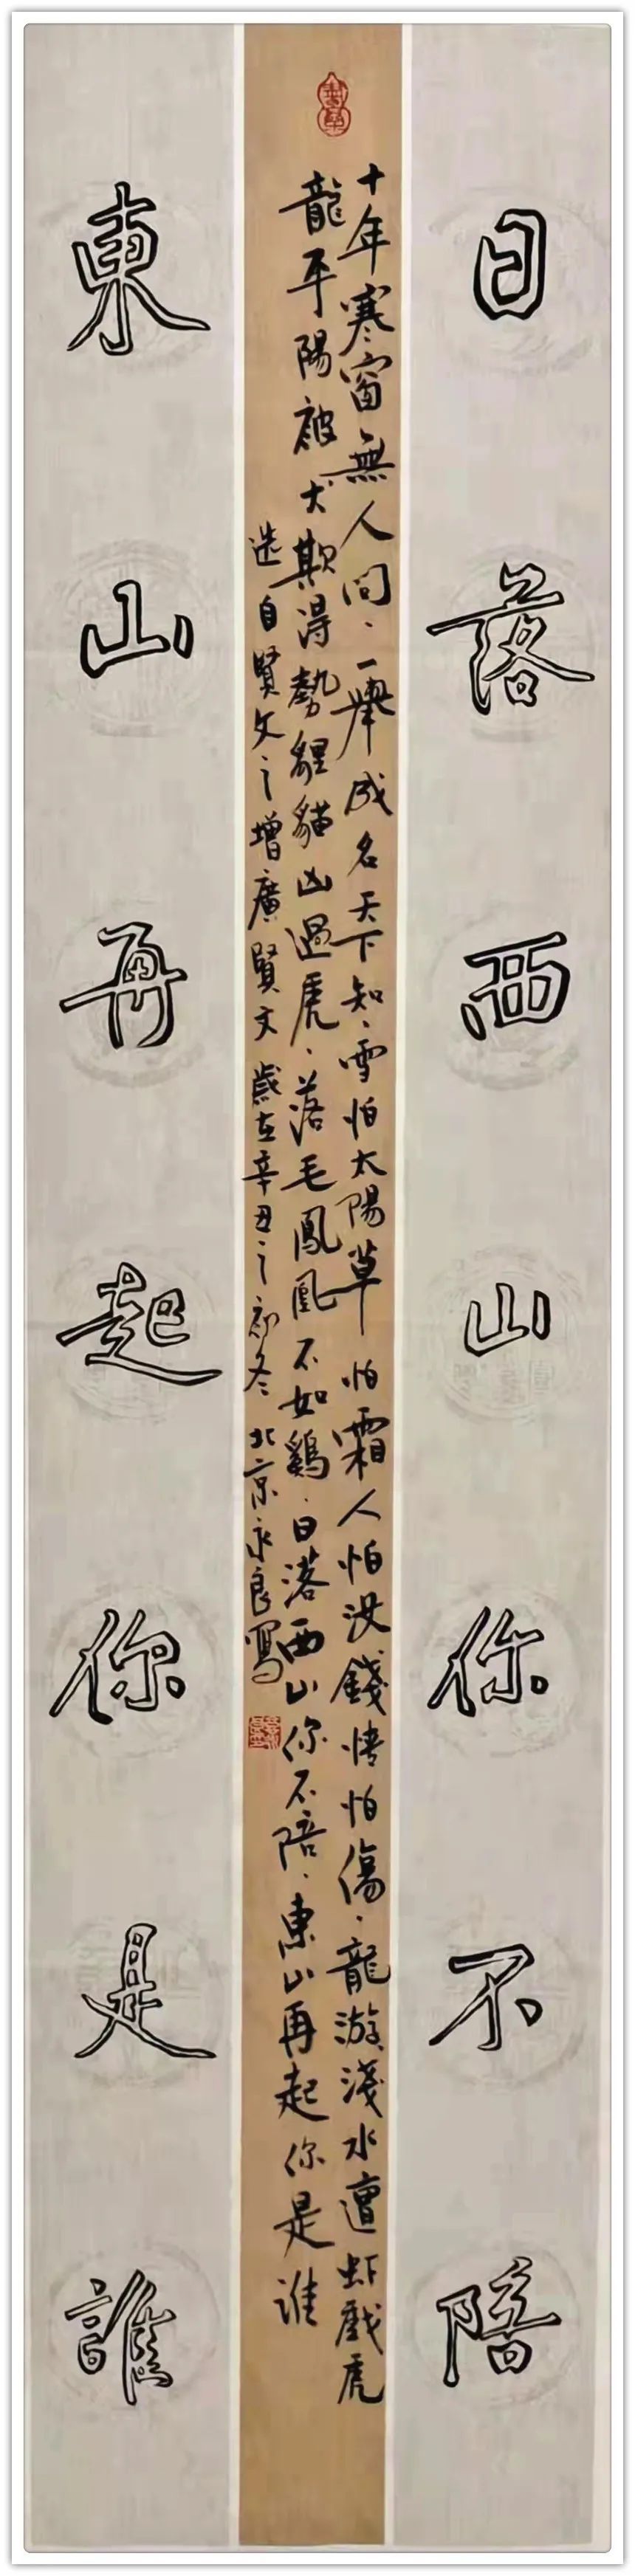 日落西山你不陪
十年寒窗無人問、一舉成名天下知、雪怕太陽草怕霜人怕没錢情怕傷、龍游淺水遭虾戲虎
龍平陽被犬欺得勢貍貓凶過虎、落毛鳳凰不如鷄、日落西山你不陪、東山再起你是谁
选自賢文之增廣賢文 歲在辛丑之初冬 北京永良寫
東山再起你是誰